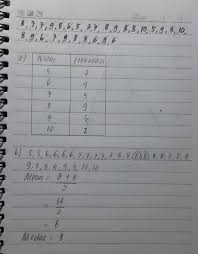 8, 7, 7, 9, 8, 6, 5, 7, 7, 8, 9, 8, 8, 10, 5, 9, 8, 10,
8, 9, 6, 7, 9, 8, 8, 6, 6
a) Nilai Frekuensi
5 2
6 4
7 5
8 9
9 5
10 2
b) 5, 5, 6, 6, 6, 6, 7, 7, 7, 7, 7, 8, 8, 8, 8, 8, 8, 8, 8, 8,
9, 9, 9, 9, 9, 10, 10
= 8 + 8
2
= 16
2
= 8
Modus : 8